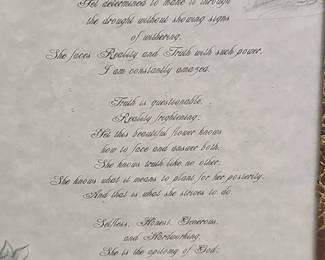 Yet determined to make it through
the drought without showing signs
of withering.
She faces Reality and Truth with such power,
I am constantly amazed.
Truth is questionable.
Reality frightening.
Yet this beautiful flower knows
how to face and answer both.
She knows truth like no other.
She knows what it means to plant for her posterity.
And that is what she strives to do.
Selfless, Honest, Generous,
and Hardworking,
She is the epitomy of God;